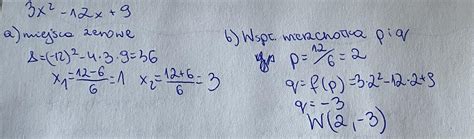 3x² - 12x + 9
a) miejsca zerowe
Δ = (-12)² - 4·3·9 = 36
x₁ = 12-6/6 = 1 x₂ = 12+6/6 = 3
b) Wsp. wierzchołka p i q
p = 12/6 = 2
q = f(p) = 3·2² - 12·2 + 9
q = -3
W(2, -3)